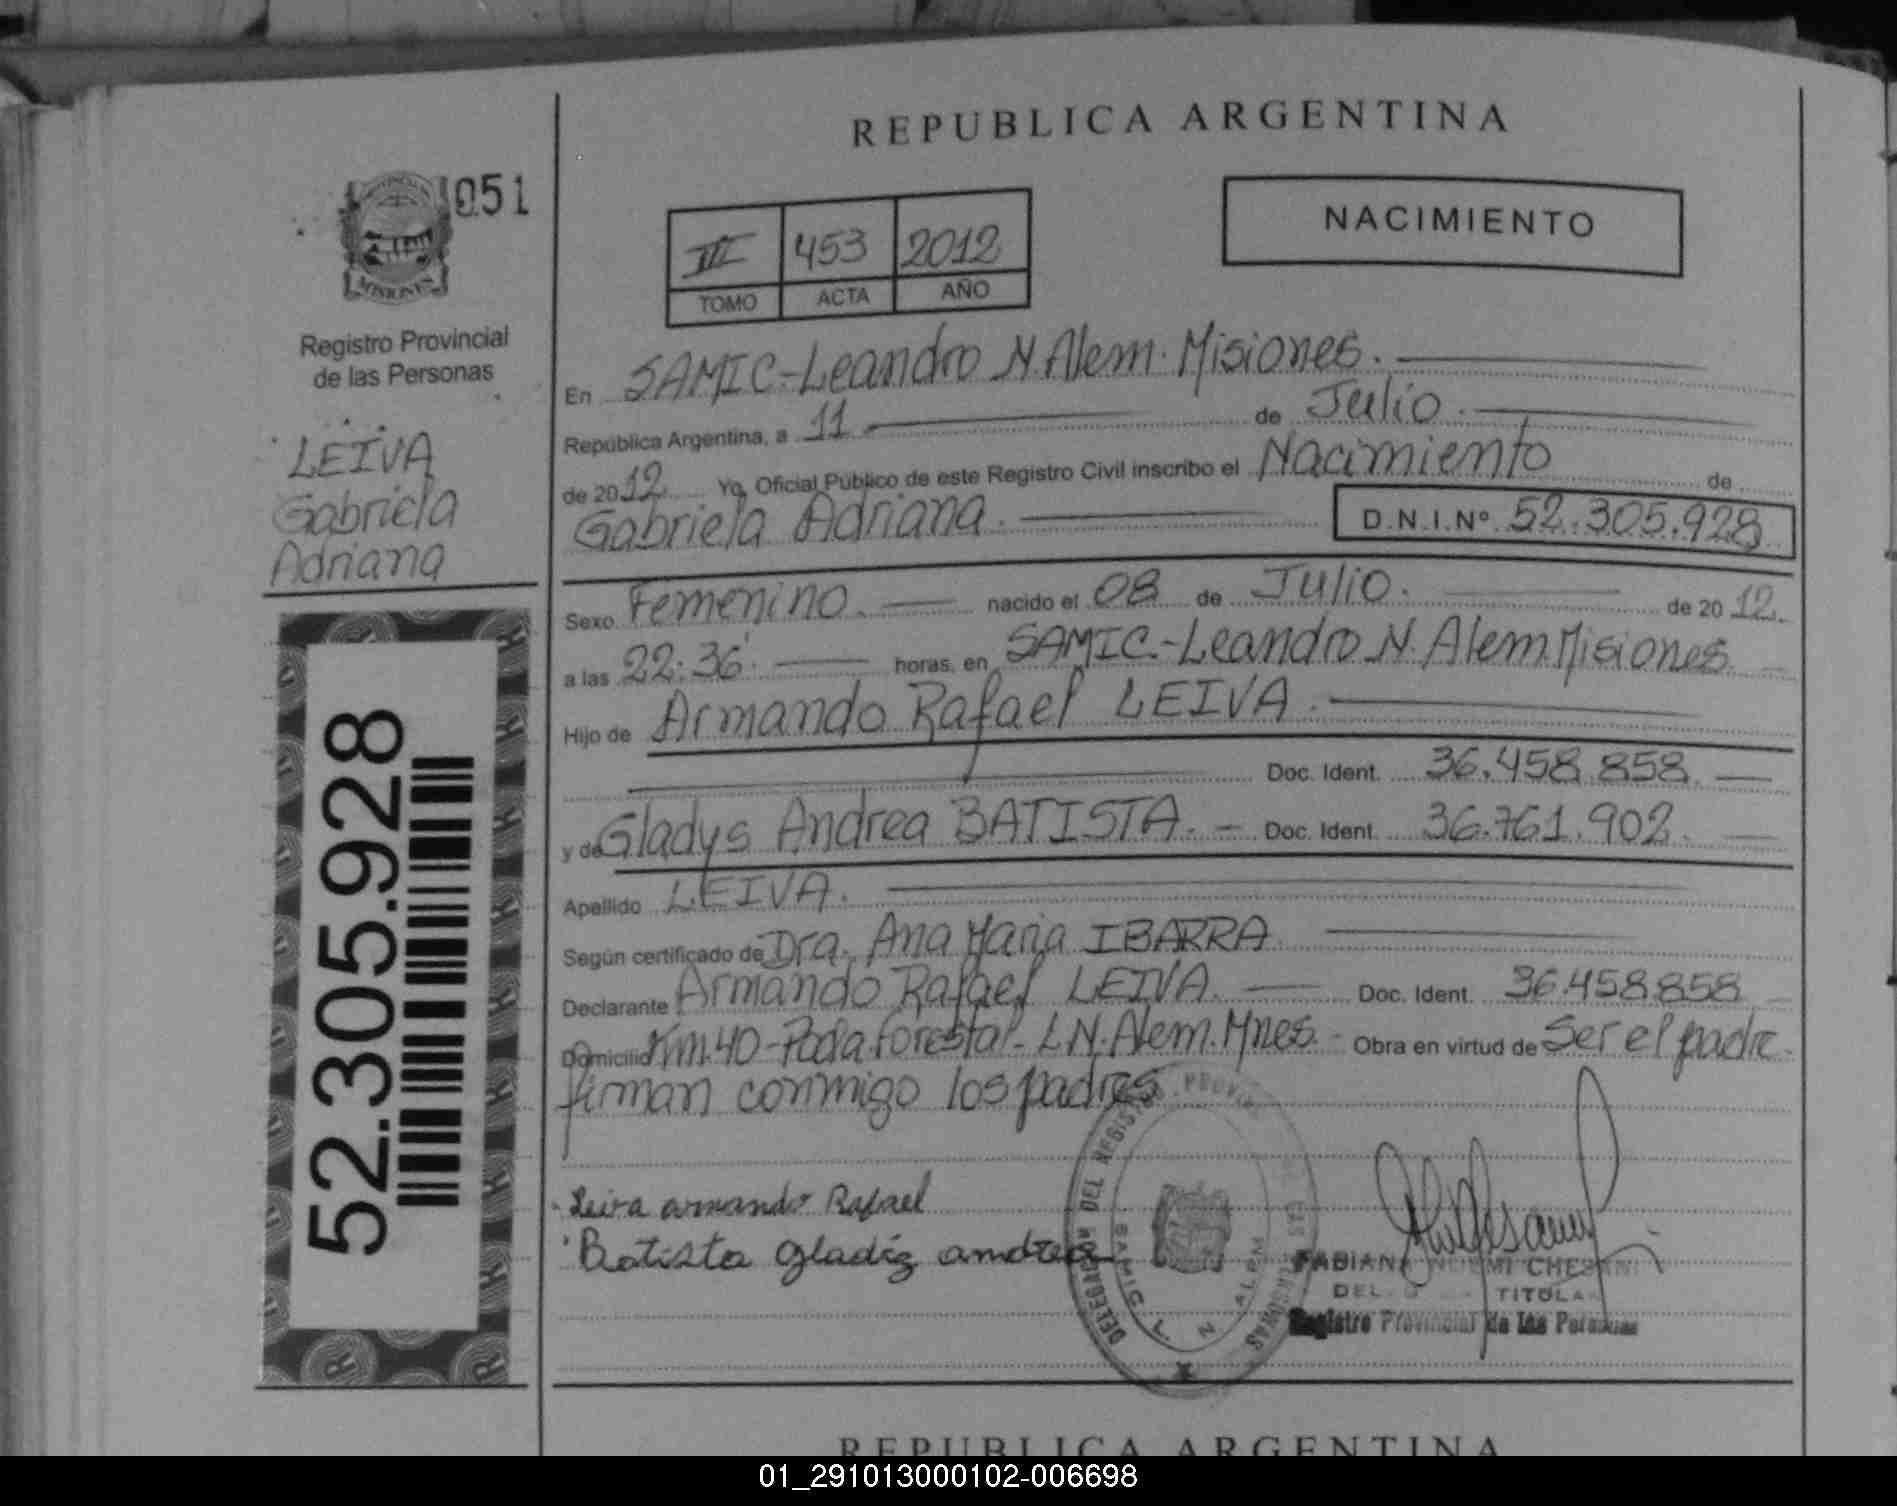 REPUBLICA ARGENTINA
051
NACIMIENTO
III 453 2012
TOMO ACTA AÑO
MISIONES
Registro Provincial
de las Personas
LEIVA
Gabriela
Adriana
52.305.928
En SAMIC-Leandro N. Alem. Misiones.
República Argentina, a 11 de Julio.
de 2012 Yo, Oficial Público de este Registro Civil inscribo el Nacimiento de
Gabriela Adriana. D.N.I.Nº 52.305.928
Sexo Femenino. nacido el 08 de Julio. de 2012.
a las 22:36. horas, en SAMIC.-Leandro N. Alem. Misiones
Hijo de Armando Rafael LEIVA.
Doc. Ident. 36.458.858.
y de Gladys Andrea BATISTA. Doc. Ident. 36.761.902.
Apellido LEIVA.
Según certificado de Dra. Ana Maria IBARRA
Declarante Armando Rafael LEIVA. Doc. Ident. 36.458.858
Domicilio Km.40-Poda forestal- L.N. Alem. Mnes.- Obra en virtud de Ser el padre.
firman conmigo los padres
Leiva armando Rafael
Batista gladiz andrea
DELEGACION DEL REGISTRO PROV
SAMIC L N ALEM
FABIANA NOEMI CHESANI
TITULAR
Registro Provincial de las Personas
REPUBLICA ARGENTINA
01_291013000102-006698